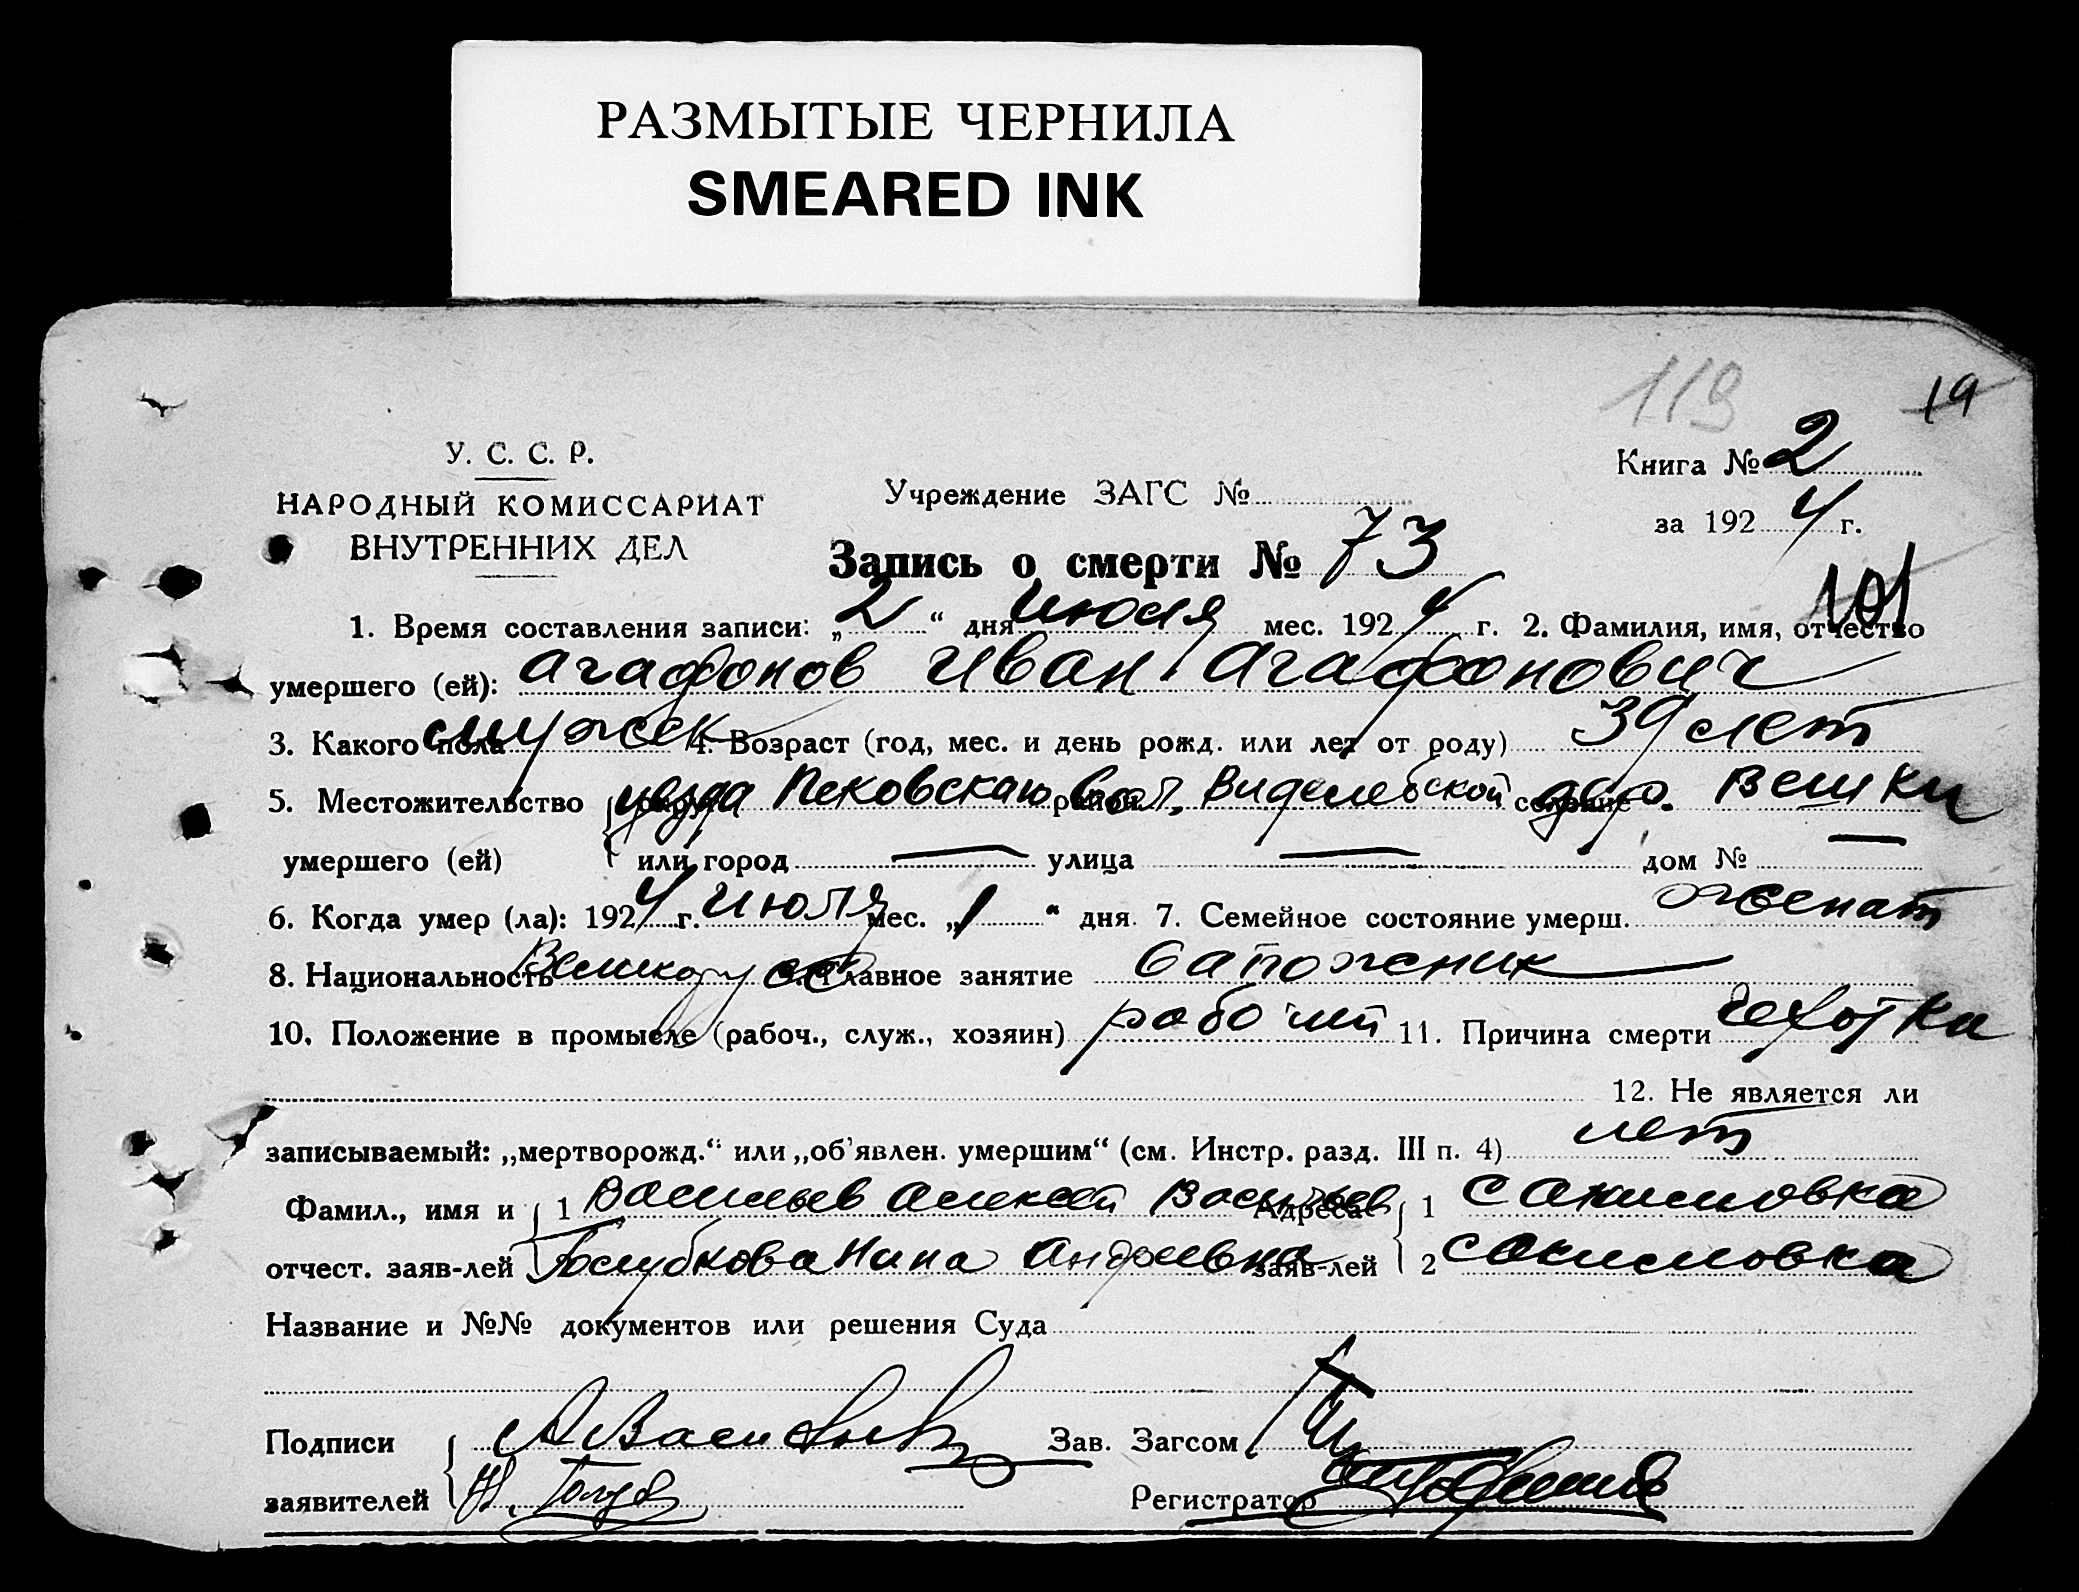 РАЗМЫТЫЕ ЧЕРНИЛА
SMEARED INK
119 19
У. С. С. Р.
НАРОДНЫЙ КОМИССАРИАТ
ВНУТРЕННИХ ДЕЛ
Учреждение ЗАГС №
Книга № 2
за 1924 г.
Запись о смерти № 73
101
1. Время составления записи: „2“ дня июля мес. 1924 г. 2. Фамилия, имя, отчество
умершего (ей): Агафонов Иван Агафонович
3. Какого пола мужск 4. Возраст (год, мес. и день рожд. или лет от роду) 39 лет
5. Местожительство округ уезда Псковская район вол. селение дер. Вешки
умершего (ей) или город — улица — дом № —
6. Когда умер (ла): 1924 г. июля мес. „1“ дня. 7. Семейное состояние умерш. женат
8. Национальность Великорусс 9. Главное занятие сапожник
10. Положение в промысле (рабоч., служ., хозяин) рабочий 11. Причина смерти чехотка
12. Не является ли
записываемый: „мертворожд.“ или „об'явлен. умершим“ (см. Инстр. разд. III п. 4) нет
Фамил., имя и 1 Васильев Алексей Васильев Адреса 1
отчест. заяв-лей 2 Голубкова Нина Андреевна заяв-лей 2
Название и №№ документов или решения Суда
Подписи А Васильев Зав. Загсом
заявителей Н. Голуб Регистратор